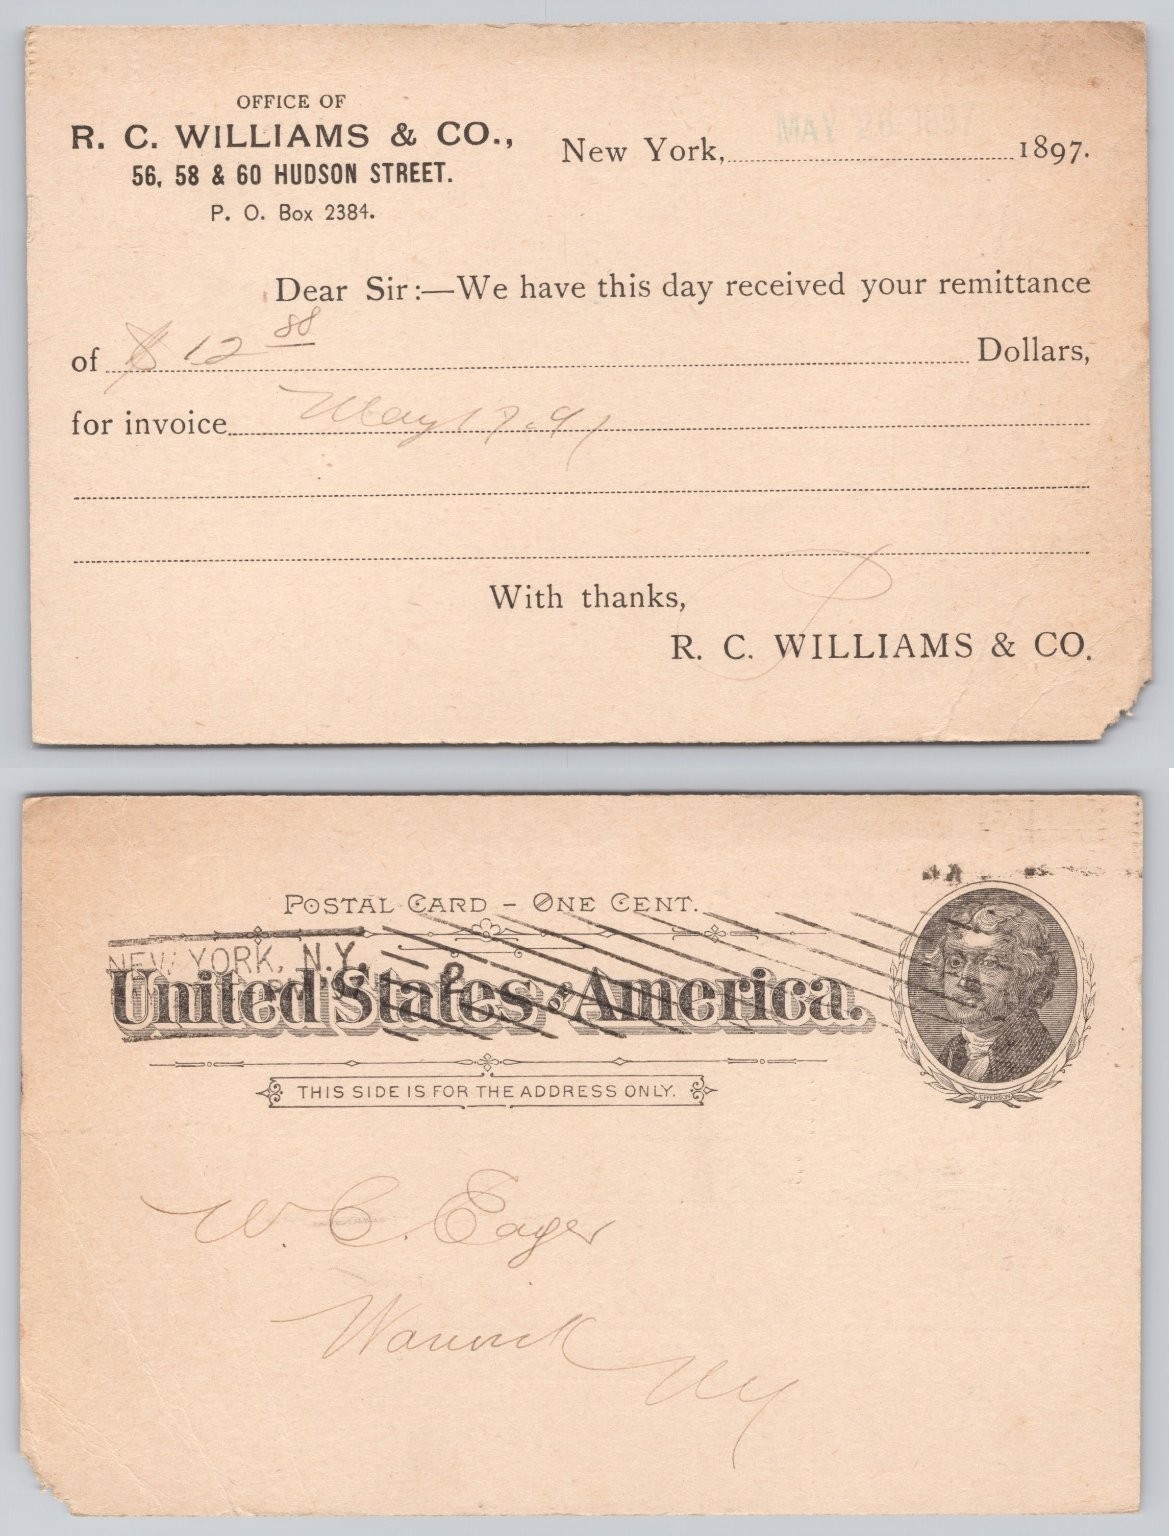 OFFICE OF
R. C. WILLIAMS & CO.,
56, 58 & 60 HUDSON STREET.
P. O. Box 2384.
New York, MAY 26 1897 1897.
Dear Sir:—We have this day received your remittance
of $ 12 88 Dollars,
for invoice May 17. 97
With thanks,
R. C. WILLIAMS & CO.
POSTAL CARD – ONE CENT.
NEW YORK, N.Y.
United States of America.
THIS SIDE IS FOR THE ADDRESS ONLY.
JEFFERSON
W. C. Eager
Warwick
NY